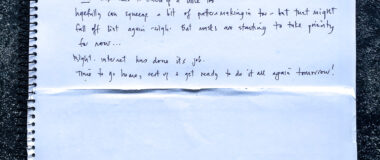 hopefully can squeeze a bit of patternmaking in too - but that might
fall off list again - sigh. But are starting to take priority
for now...
Right. internet has done its job.
Time to go home, rest up & get ready to do it all again tomorrow!